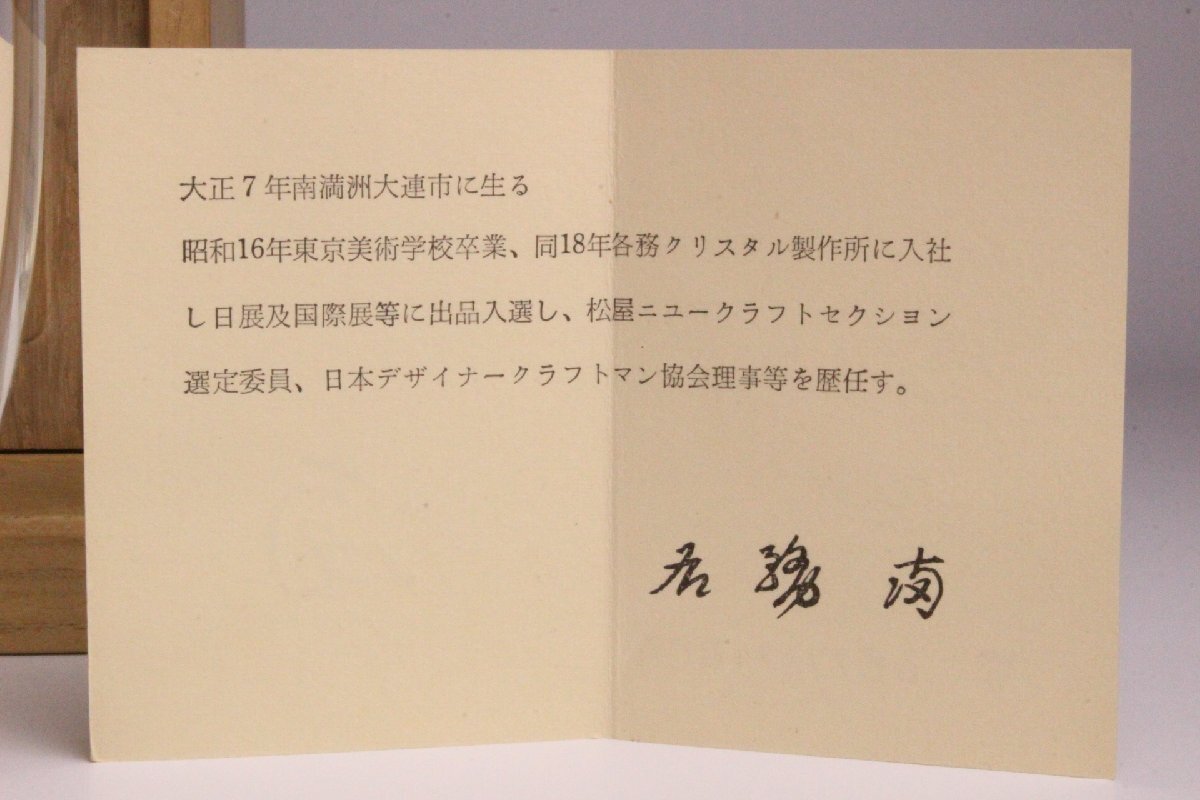 大正7年南満洲大連市に生る
昭和16年東京美術学校卒業、同18年各務クリスタル製作所に入社
し日展及国際展等に出品入選し、松屋ニユークラフトセクシヨン
選定委員、日本デザイナークラフトマン協会理事等を歴任す。
各務満